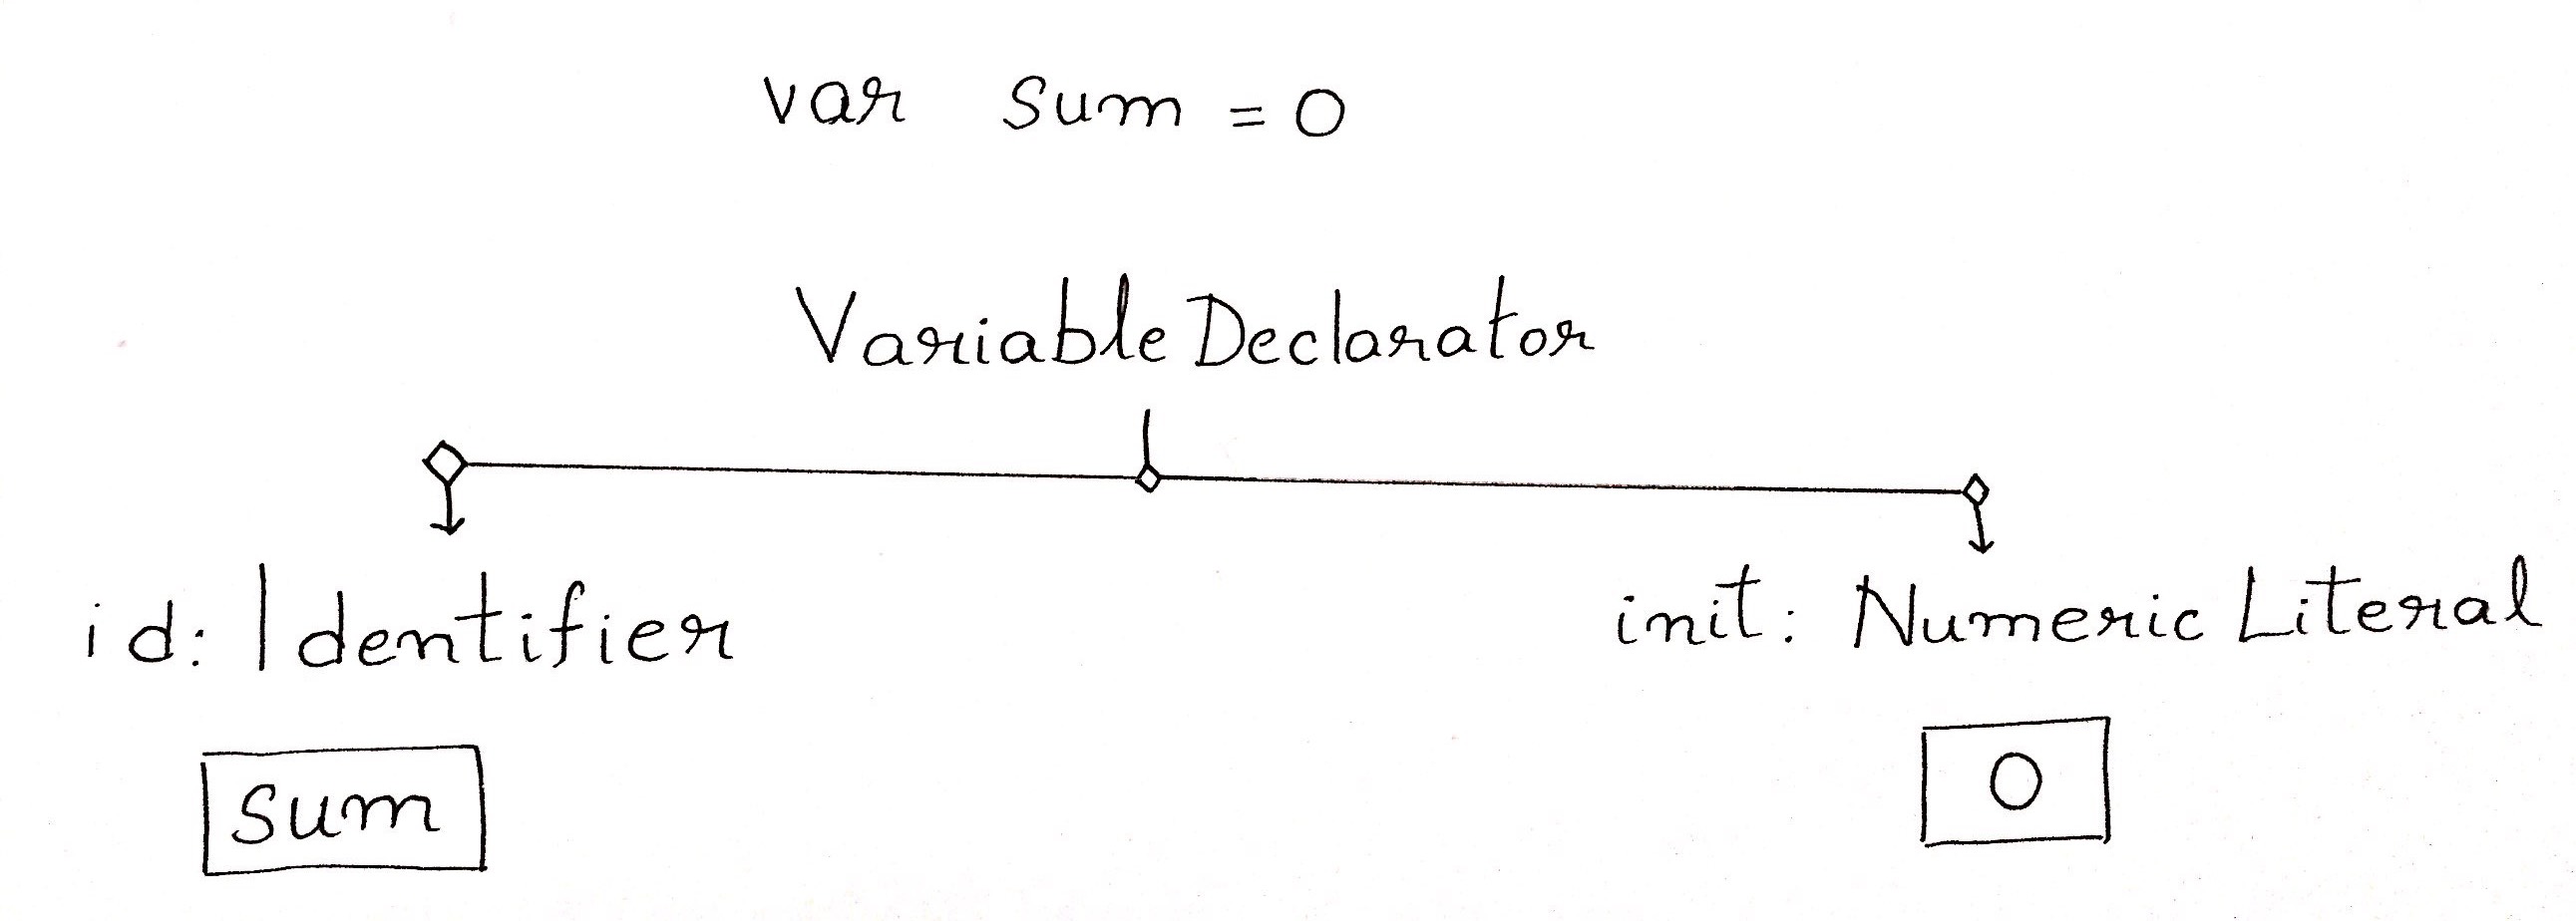 var sum = 0
Variable Declarator
id: Identifier
init: Numeric Literal
sum
0